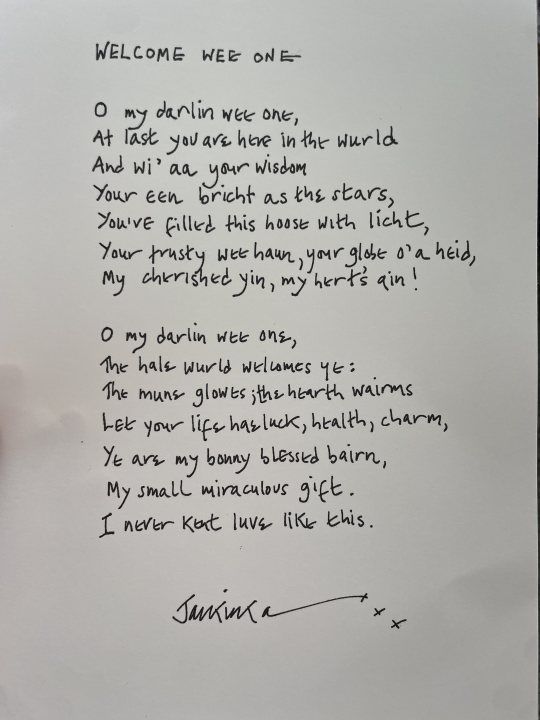 WELCOME WEE ONE
O my darlin wee one,
At last you are here in the wurld
And wi' aa your wisdom
Your een bricht as the stars,
You've filled this hoose with licht,
Your trusty wee haun, your globe o'a heid,
My cherished yin, my hert's ain!
O my darlin wee one,
The hale wurld welcomes ye:
The mune glowes; the hearth wairms
Let your life hae luck, health, charm,
Ye are my bonny blessed bairn,
My small miraculous gift.
I never kent luve like this.
Jackie Kay
x x x